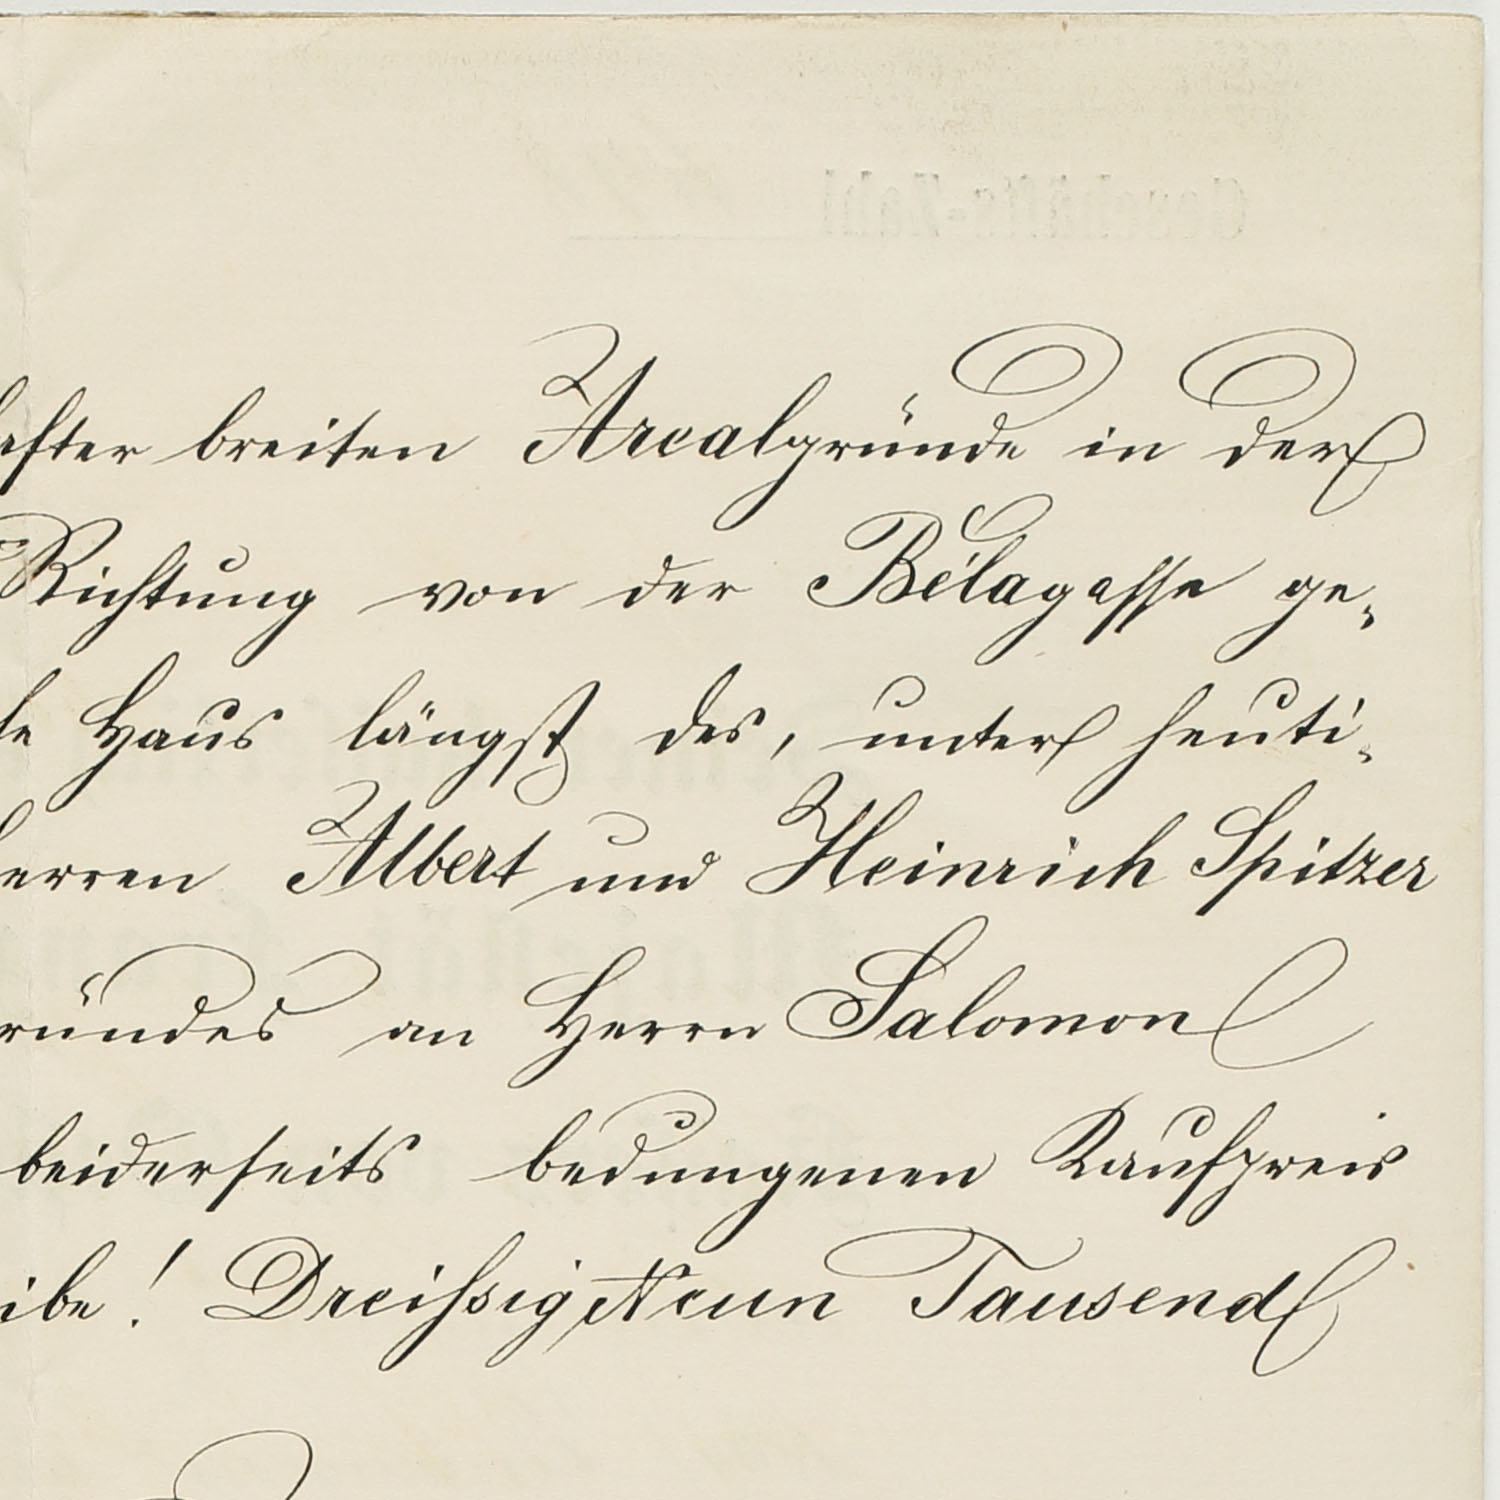 after breiten Arealgründe in der
Richtung von der Bélagasse ge-
le Haus längst des, unter heuti-
herren Albert und Heinrich Spitzer
ründes an Herrn Salomon
beiderseits bedungenen Kaufpreis
ibe! Dreißig Neun Tausend